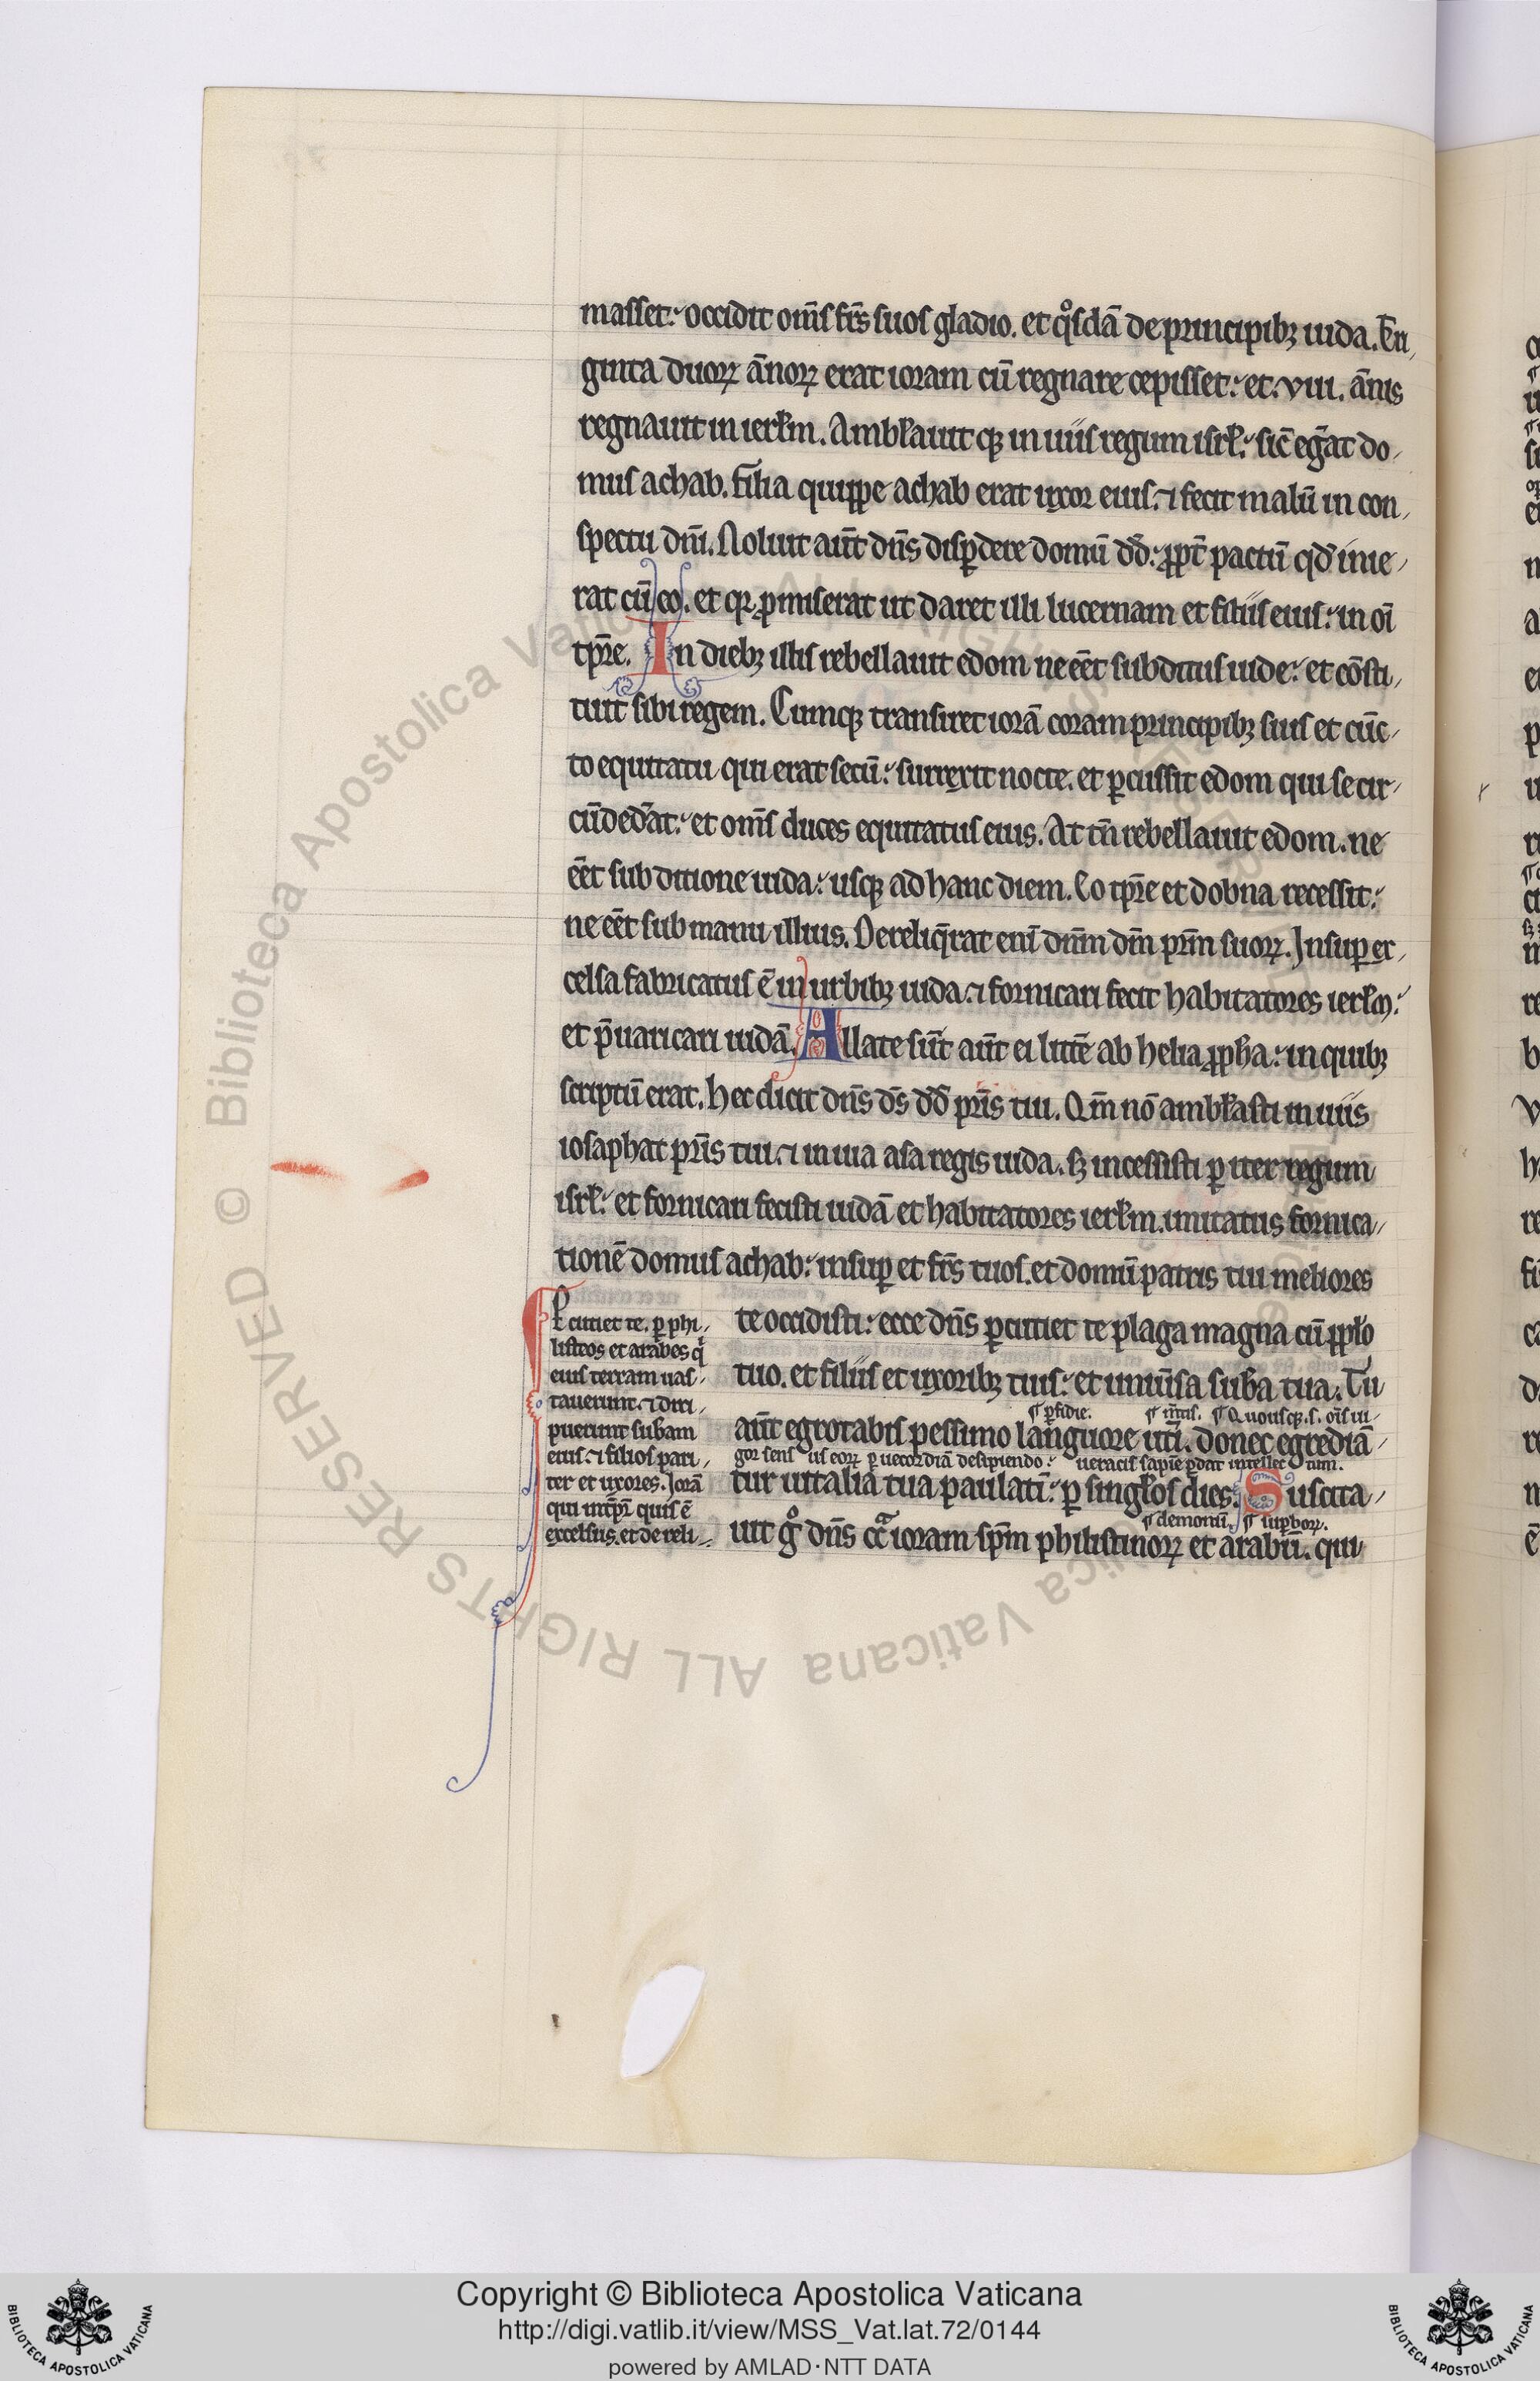 masset. occidit om̄s fr̄s suos gladio. et qͦsdā de principibꝫ iuda. Tri,
ginta duoꝝ ānoꝝ erat ioram cū regnare cepisset. et. viii. ānis
regnauit in ierłm. Ambłauit qꝫ in uiis regum isrł. sic̄ eḡat do,
mus achab. Filia quippe achab erat uxor eius. ⁊ fecit malū in con,
spectu dn̄i. Noluit aūt dn̄s disꝑdere domū dd̄. ꝓpt̄ pactū qd̄ inie,
rat cū eo. et qꝛ ꝓmiserat ut daret illi lucernam et filiis eius. in oī
tp̄re. In diebꝫ illis rebellauit edom ne eēt subditus iude. et cōsti,
tuit sibi regem. Cumqꝫ transiret iorā coram principibꝫ suis et cūc,
to equitatu qui erat secū. surrexit nocte. et ꝑcussit edom qui se cir,
cūdedāt. et om̄s duces equitatus eius. At tn̄ rebellauit edom. ne
eēt sub ditione iuda. usqꝫ ad hanc diem. Eo tp̄re et dobna recessit.
ne eēt sub manu illius. Dereliq̄rat enī dn̄m dm̄ pr̄m suoꝝ. Insuꝑ ex,
celsa fabricatus ē in urbibꝫ iuda. ⁊ fornicari fecit habitatores ierłm.
et p̄uaricari iudā. Allate sūt aūt ei litt̄e ab helia ꝓpħa. in quibꝫ
scriptū erat. Hec dicit dn̄s ds̄ dd̄ pr̄is tui. Qm̄ nō ambłasti in uiis
iosaphat pr̄is tui. ⁊ in uia asa regis iuda. sꝫ incessisti ꝑ iter regum
isrł. et fornicari fecisti iudā et habitatores ierłm. imitatus fornica,
tionē domus achab. insuꝑ et fr̄s tuos. et domū patris tui meliores
te occidisti. ecce dn̄s ꝑcutiet te plaga magna cū ppło
tuo. et filiis et uxoribꝫ tuis. et uniūsa suba tua. Tu
¶ ꝑfidie. ¶ m̄tis. ¶ Quousqꝫ. s. oīs ui,
aūt egrotabis pessimo languore ut̄i. donec egrediā,
gor sens us eoꝝ ꝑ uecordiā desipiendo. ueracis sapiē ꝑdat intellec tum.
tur uitalia tua paulatī. ꝑ singłos dies. Suscita,
¶ demoniū. ¶ suꝑboꝝ.
uit gͦ dn̄s ccᵃ ioram sp̄m philistinoꝝ et arabū. qui
Percutiet te. ꝑ phi,
listeos et arabes qͥ
eius terram uas,
tauerunt. ⁊ diri,
puerunt subam
eius. ⁊ filios pari,
ter et uxores. Iorā
qui int̄p̄r quis ē
excelsus. et de reli,
© Biblioteca Apostolica Vaticana ALL RIGHTS RESERVED
Copyright © Biblioteca Apostolica Vaticana
http://digi.vatlib.it/view/MSS_Vat.lat.72/0144
powered by AMLAD·NTT DATA
BIBLIOTECA APOSTOLICA VATICANA
BIBLIOTECA APOSTOLICA VATICANA